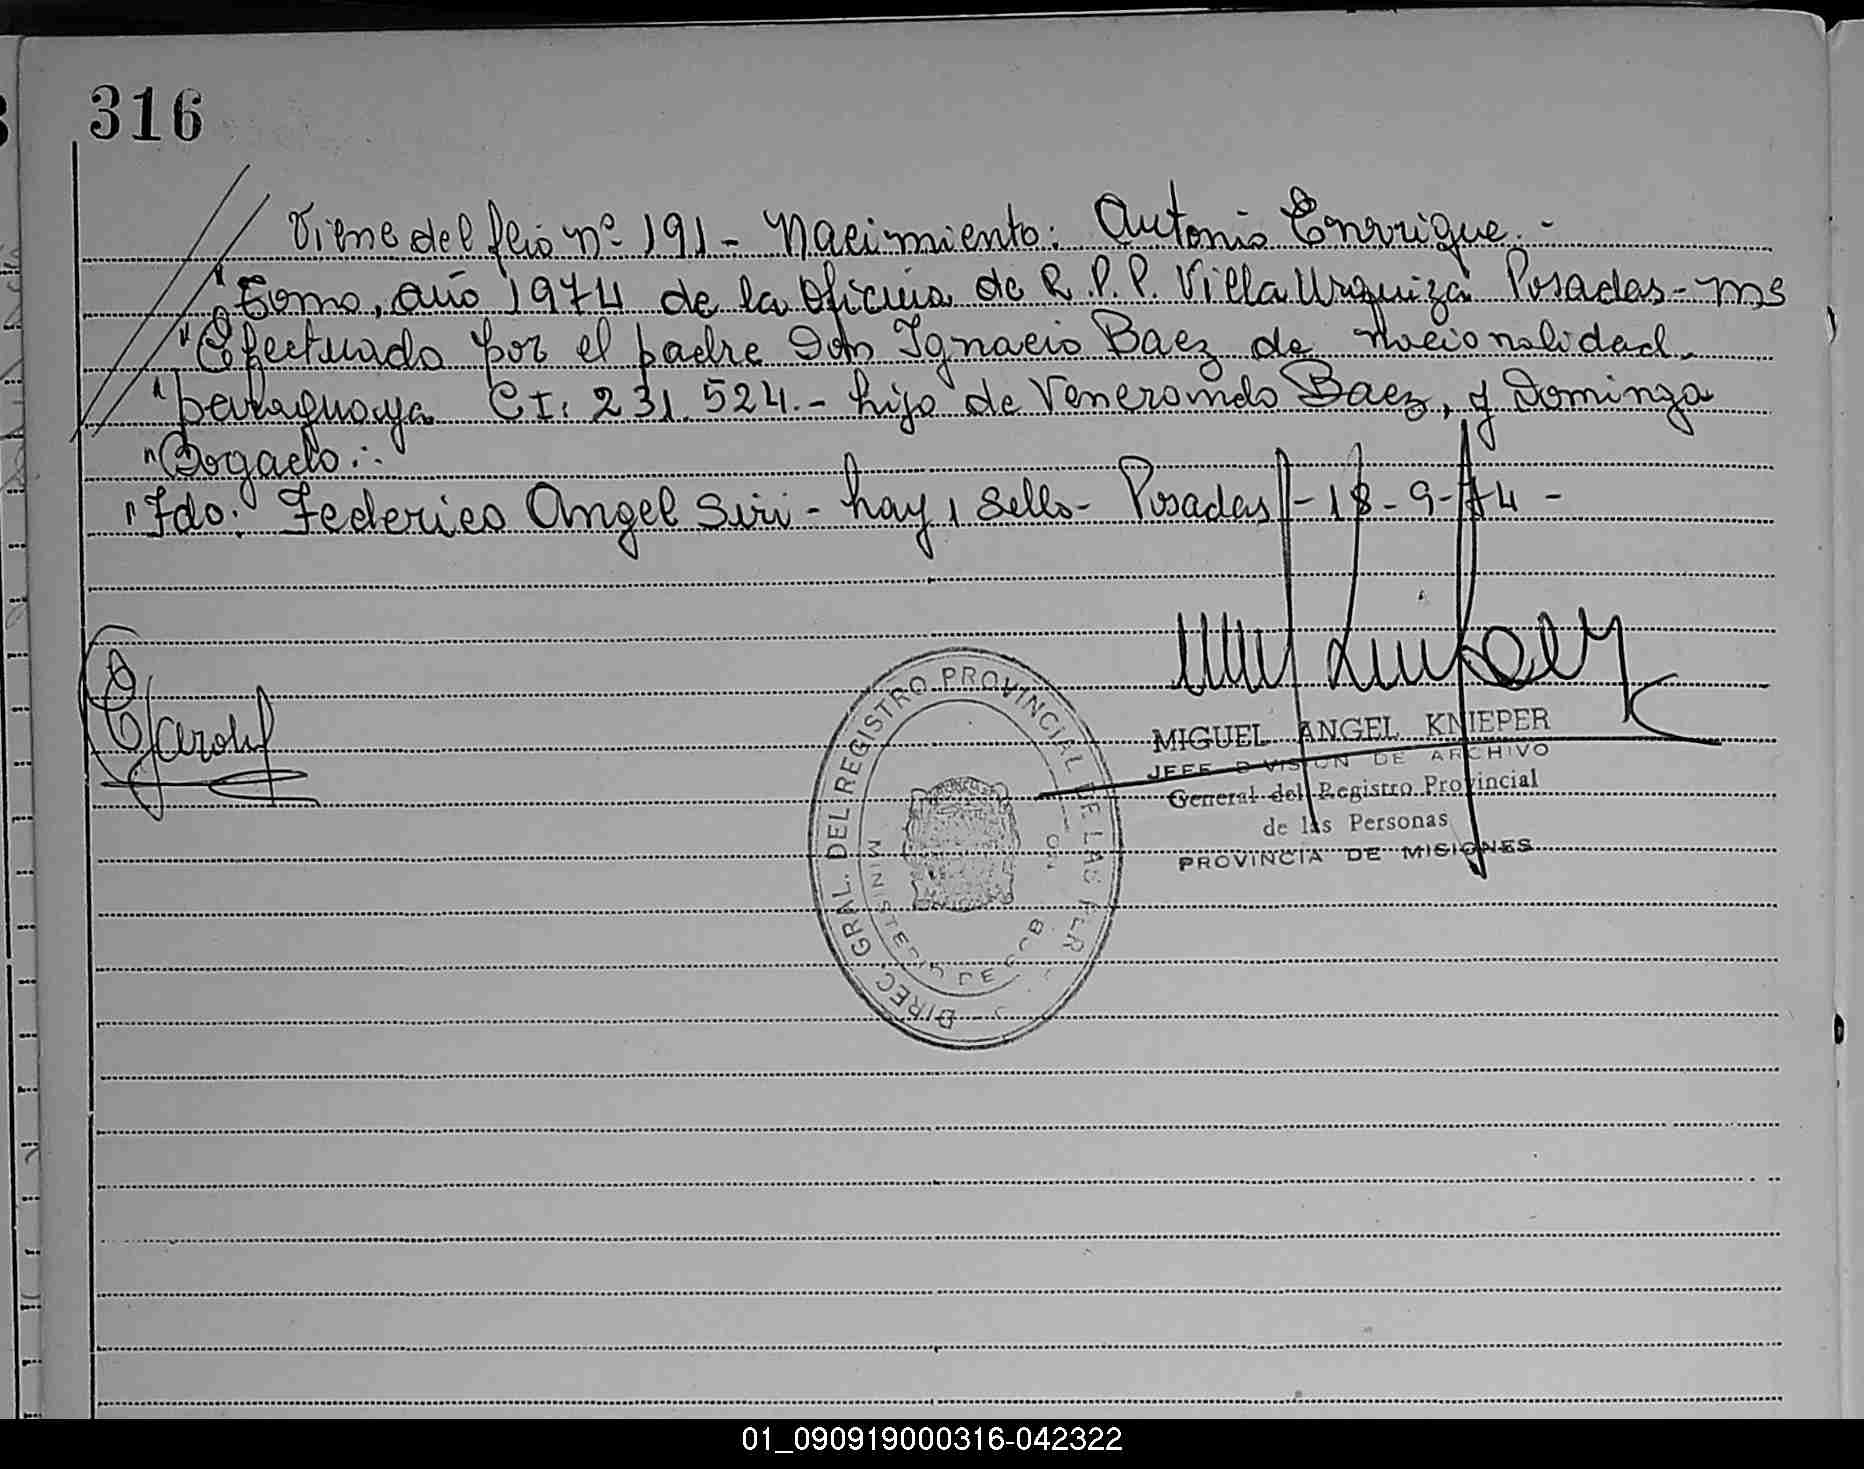 316
Viene del flio nº 191 - Nacimiento: Antonio Enrrique. -
" Tomo, año 1974 de la Oficina de R.P.P. Villa Urquiza Posadas - Ms
" Efectuado por el padre Don Ignacio Baez de nacionalidad
" paraguaya CI: 231.524. - hijo de Venerando Baez, y Dominga
" Bogado. -
" Fdo. Federico Angel Siri - hay 1 Sello - Posadas - 18 - 9 - 74 -
MIGUEL ANGEL KNIEPER
JEFE DIVISION DE ARCHIVO
General del Registro Provincial
de las Personas
PROVINCIA DE MISIONES
DIREC. GRAL. DEL REGISTRO PROVINCIAL DE LAS PER
MINISTERIO DE GOB
01_090919000316-042322